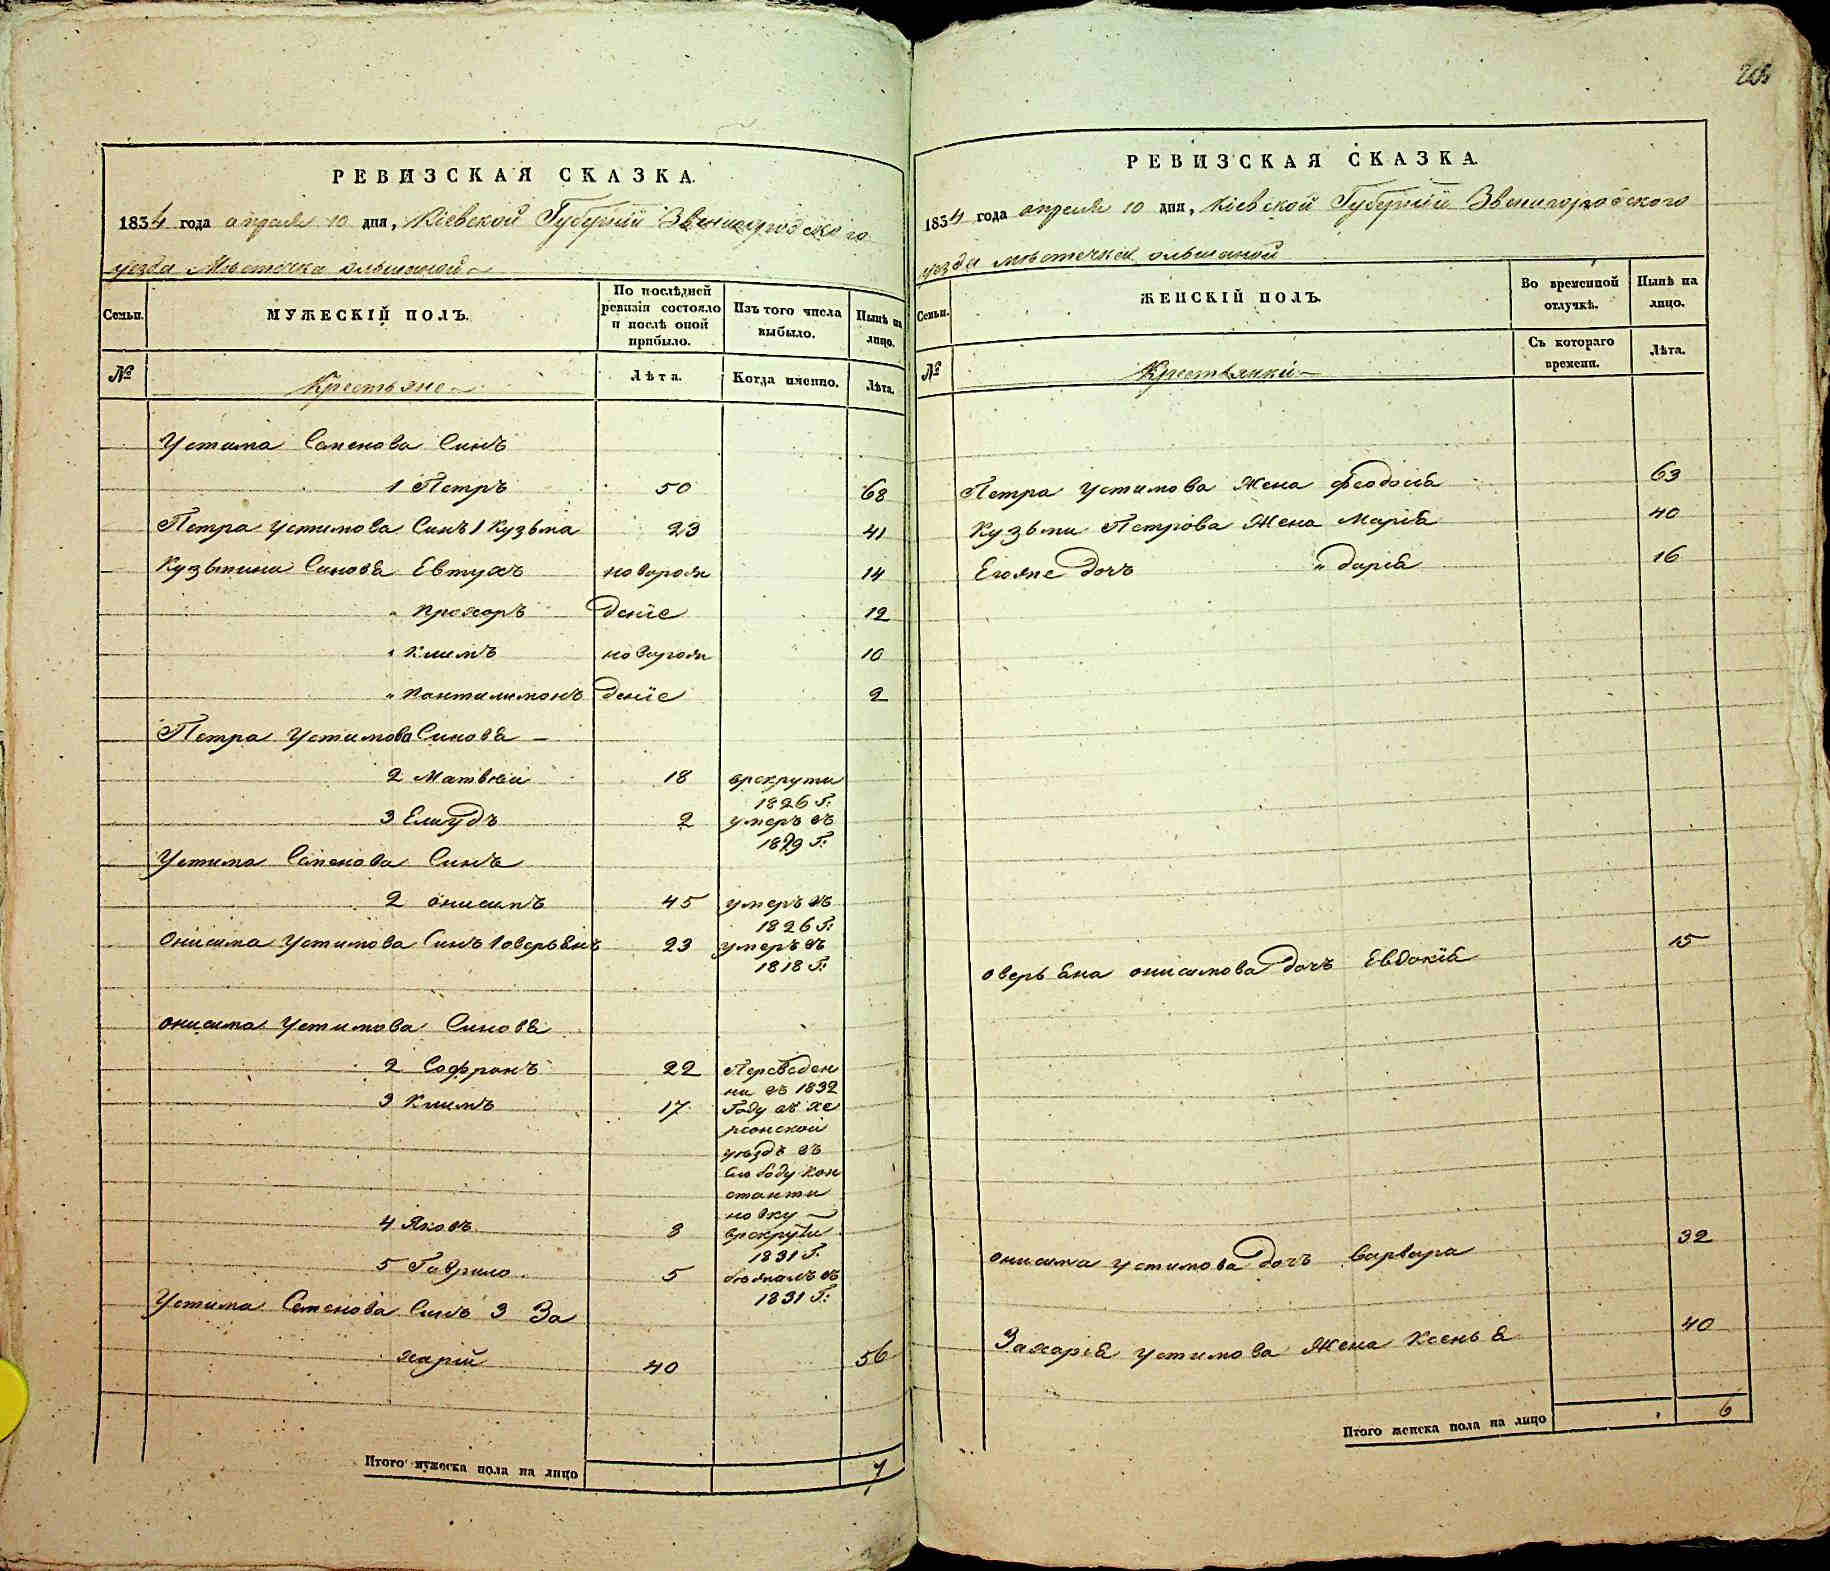 РЕВИЗСКАЯ СКАЗКА.
1834 года апреля 10 дня, Кіевской Губерніи Звенигородского
уезда Мѣстечка ольшаной
Семьи.
МУЖЕСКІЙ ПОЛЪ.
По послѣдней ревизіи состояло и послѣ оной прибыло.
Изъ того числа выбыло.
Нынѣ на лицо.
№
Крестьяне
Лѣта.
Когда именно.
Лѣта.
Устима Семенова Синъ
1 Петръ 50 68
Петра Устимова Синъ 1 Кузьма 23 41
Кузьмини Синовя Евтухъ новорож 14
" Прохоръ дение 12
" Климъ новорож 10
" Пантилимонъ дение 2
Петра Устимова Синовя
2 Матвеи 18 врекрути
1826 Г:
3 2 умеръ въ
1829 Г:
Устима Семенова Синъ
2 Онисимъ 45 умеръ въ
1826 Г:
Онисима Устимова Синъ 1 оверьянъ 23 умеръ въ
1818 Г:
онисима Устимова Синовя
2 Софронъ 22 Переведен
ни въ 1832
3 Климъ 17 Году въ хе
рсонской
уездъ въ
Слободу кон
станти
новку
4 Яковъ 8 врекрути
1831 Г:
5 Гаврило 5 бѣжалъ въ
1831 Г:
Устима Семенова Синъ 3 За
харій 40 56
Итого мужеска пола на лицо
7
205
РЕВИЗСКАЯ СКАЗКА.
1834 года апреля 10 дня, Кіевской Губерніи Звенигородского
уезда мѣстечка ольшаной
Семьи.
ЖЕНСКІЙ ПОЛЪ.
Во временной отлучкѣ.
Нынѣ на лицо.
№
Крестьянки
Съ котораго времени.
Лѣта.
Петра Устимова Жена Феодосія 63
Кузьми Петрова Жена Марія 40
Егоже дочъ " Дарія 16
оверьяна онисимова дочъ Евдокія 15
онисима устимова дочъ Варвара 32
Захарія устимова Жена Ксенья 40
Итого женска пола на лицо
6